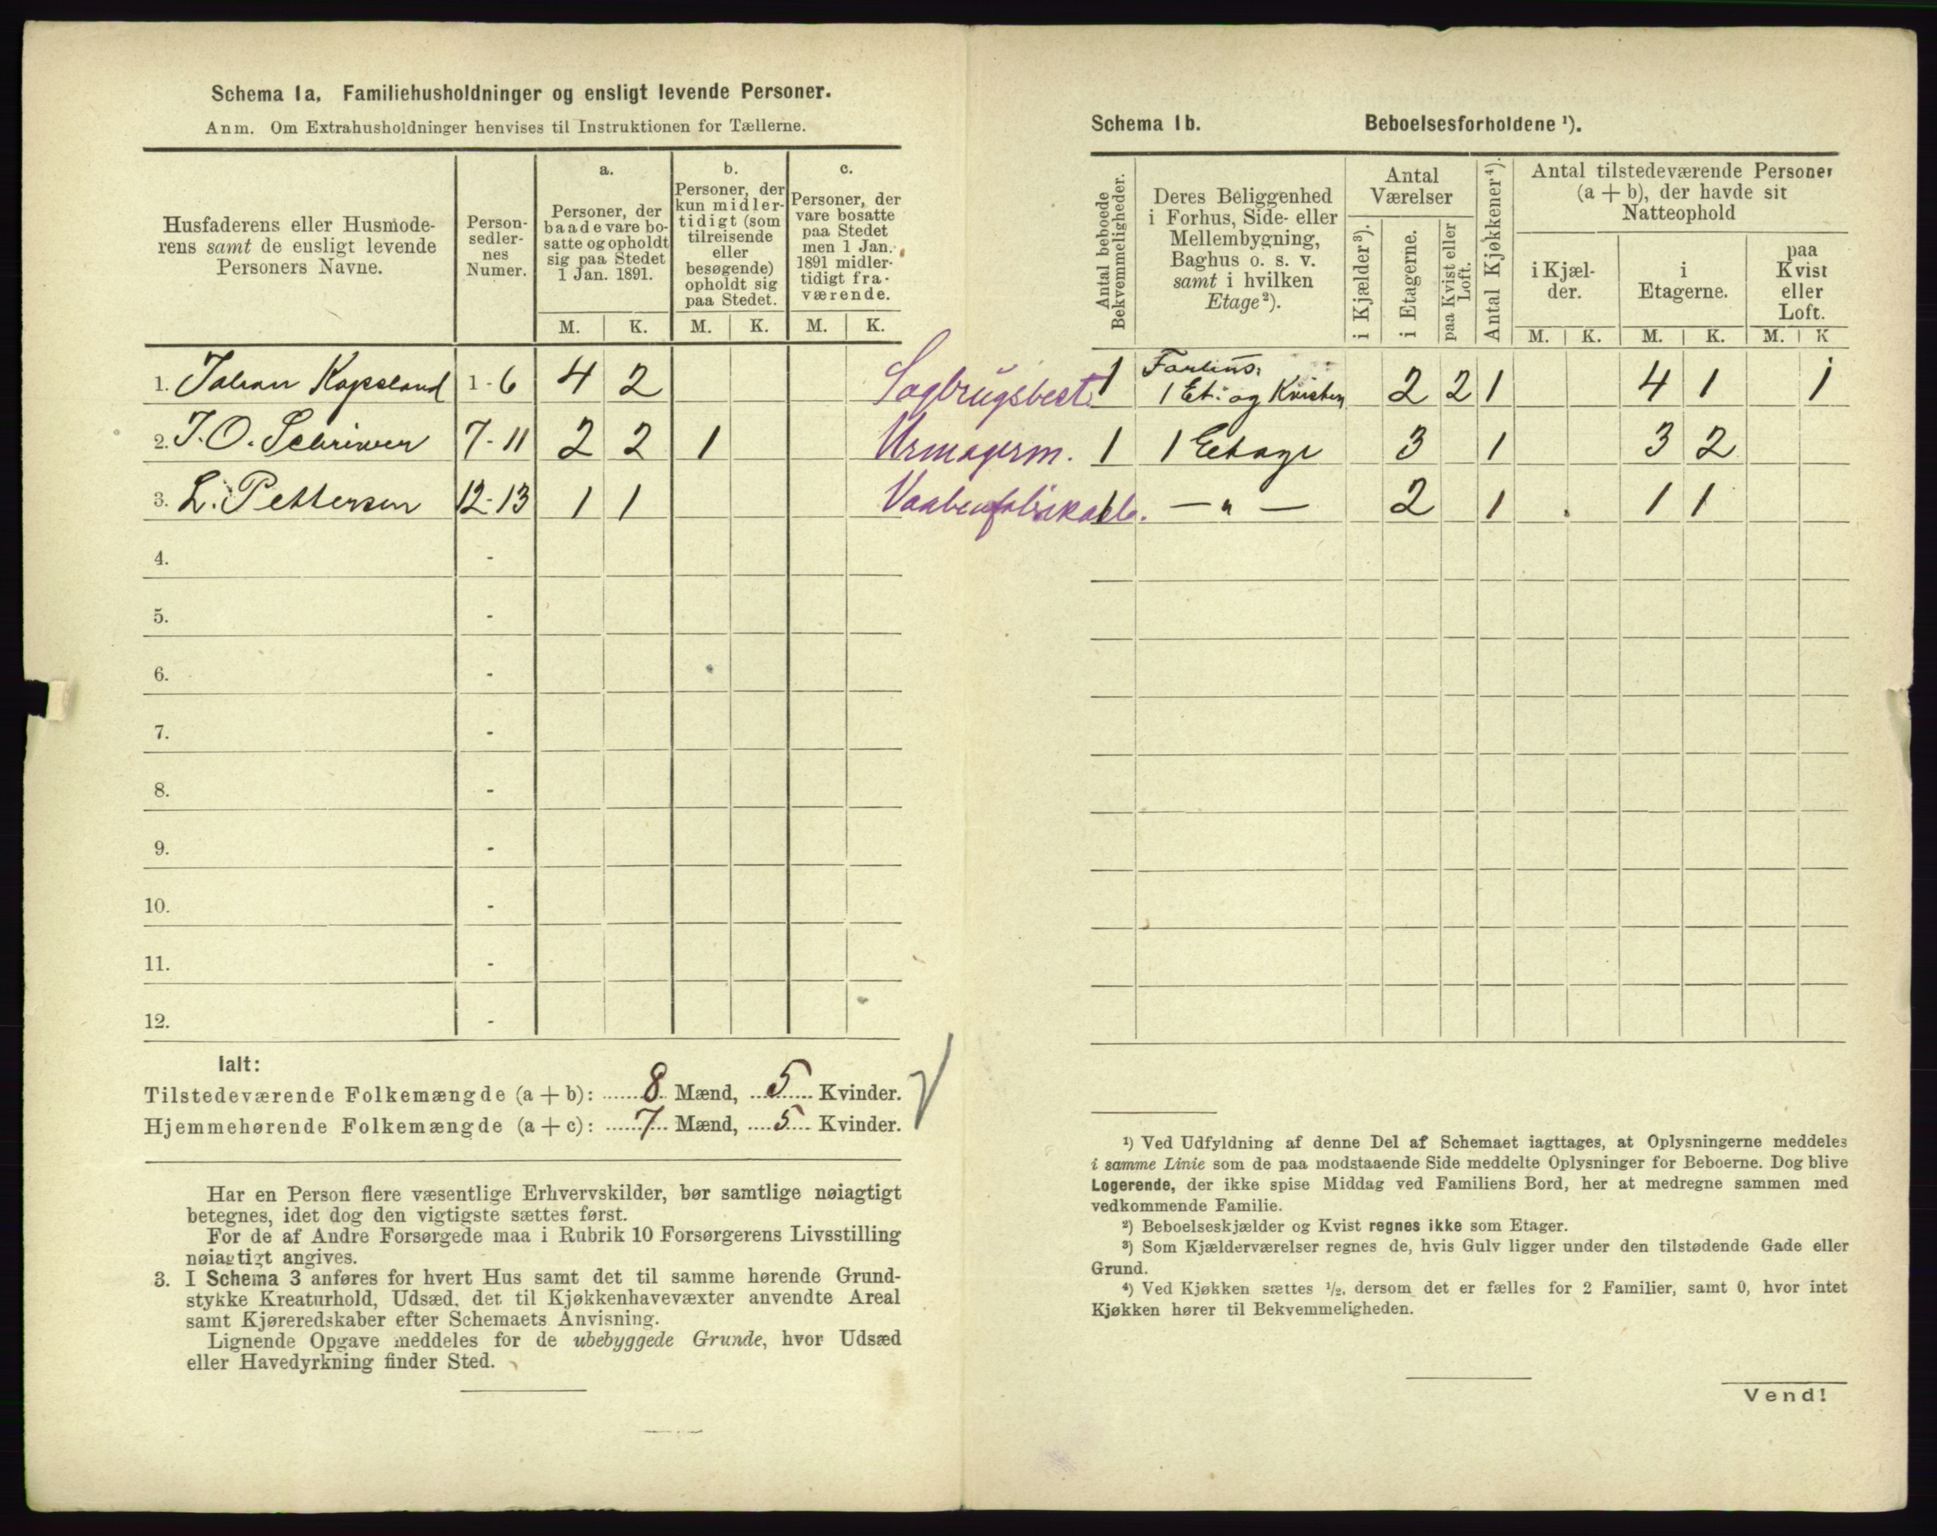 Schema 1a. Familiehusholdninger og ensligt levende Personer.
Anm. Om Extrahusholdninger henvises til Instruktionen for Tællerne.
Husfaderens eller Husmode-
rens samt de ensligt levende
Personers Navne.
Person-
sedler-
nes
Numer.
a.
Personer, der
baade vare bo-
satte og opholdt
sig paa Stedet
1 Jan. 1891.
b.
Personer, der
kun midler-
tidigt (som
tilreisende
eller
besøgende)
opholdt sig
paa Stedet.
c.
Personer, der
vare bosatte
paa Stedet
men 1 Jan.
1891 midler-
tidigt fra-
værende.
M. K. M. K. M. K.
1. Johan Kapsland 1-6 4 2 Sagbrugsbest.
2. J. O. Schriwer 7-11 2 2 1 Urmagerm.
3. L. Pettersen 12-13 1 1 Vaabenfabrikarb.
4. -
5. -
6. -
7. -
8. -
9. -
10. -
11. -
12. -
Ialt:
Tilstedeværende Folkemængde (a + b): 8 Mænd, 5 Kvinder.
Hjemmehørende Folkemængde (a + c): 7 Mænd, 5 Kvinder.
Har en Person flere væsentlige Erhvervskilder, bør samtlige nøiagtigt
betegnes, idet dog den vigtigste sættes først.
For de af Andre Forsørgede maa i Rubrik 10 Forsørgerens Livsstilling
nøiagtigt angives.
3. I Schema 3 anføres for hvert Hus samt det til samme hørende Grund-
stykke Kreaturhold, Udsæd, det til Kjøkkenhavevæxter anvendte Areal
samt Kjøreredskaber efter Schemaets Anvisning.
Lignende Opgave meddeles for de ubebyggede Grunde, hvor Udsæd
eller Havedyrkning finder Sted.
Schema 1b. Beboelsesforholdene ¹).
Antal beboede
Bekvemmeligheder.
Deres Beliggenhed
i Forhus, Side- eller
Mellembygning,
Baghus o. s. v.
samt i hvilken
Etage ²).
Antal
Værelser
i Kjælder ³).
i Etagerne.
paa Kvist eller
Loft.
Antal Kjøkkener ⁴).
Antal tilstedeværende Personer
(a + b), der havde sit
Natteophold
i Kjæl-
der.
i
Etagerne.
paa
Kvist
eller
Loft.
M. K. M. K. M. K
1 Forhus, 1 Et: og Kvisten 2 2 1 4 1 1
1 1 Etage 3 1 3 2
1 — „ — 2 1 1 1
¹) Ved Udfyldning af denne Del af Schemaet iagttages, at Oplysningerne meddeles
i samme Linie som de paa modstaaende Side meddelte Oplysninger for Beboerne. Dog blive
Logerende, der ikke spise Middag ved Familiens Bord, her at medregne sammen med
vedkommende Familie.
²) Beboelseskjælder og Kvist regnes ikke som Etager.
³) Som Kjælderværelser regnes de, hvis Gulv ligger under den tilstødende Gade eller
Grund.
⁴) Ved Kjøkken sættes ½, dersom det er fælles for 2 Familier, samt 0, hvor intet
Kjøkken hører til Bekvemmeligheden.
Vend!